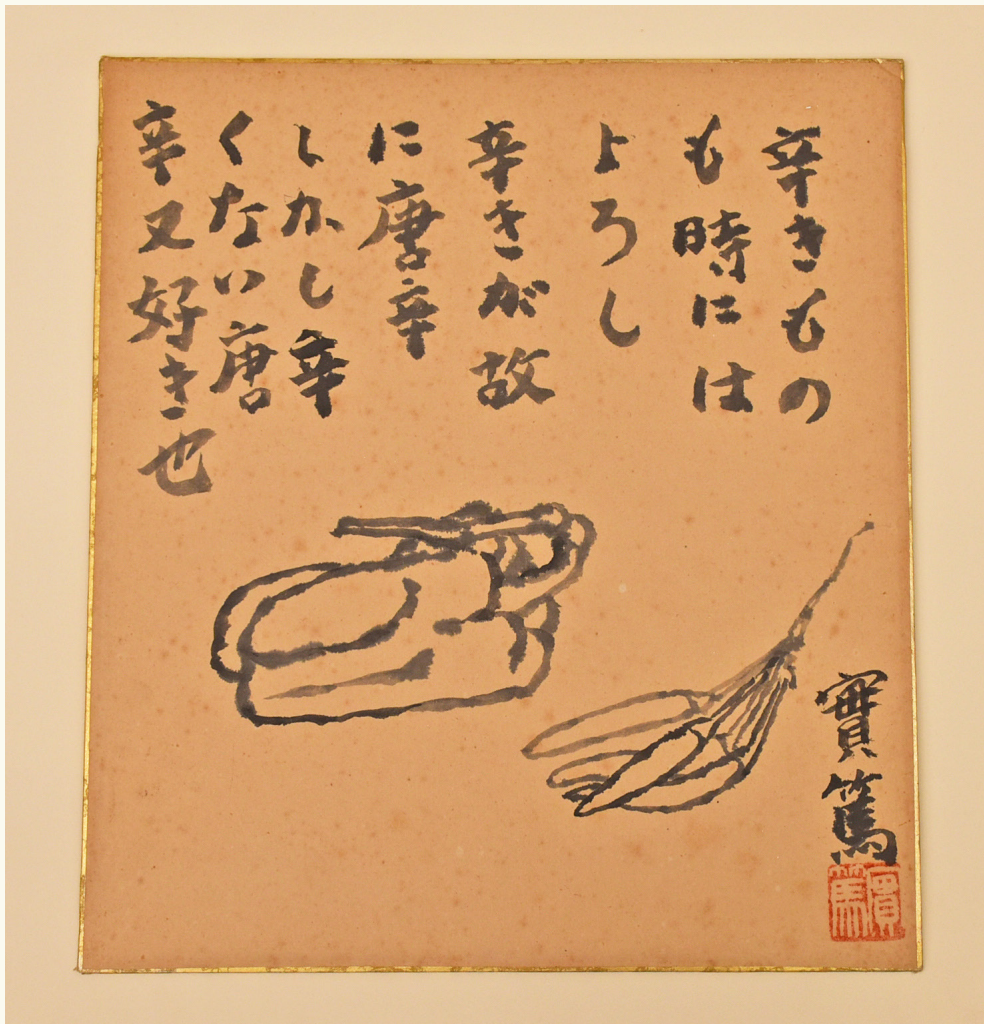 辛きもの
も時には
よろし
辛きが故
に唐辛
しかし辛
くない唐
辛又好き也
實篤
實篤